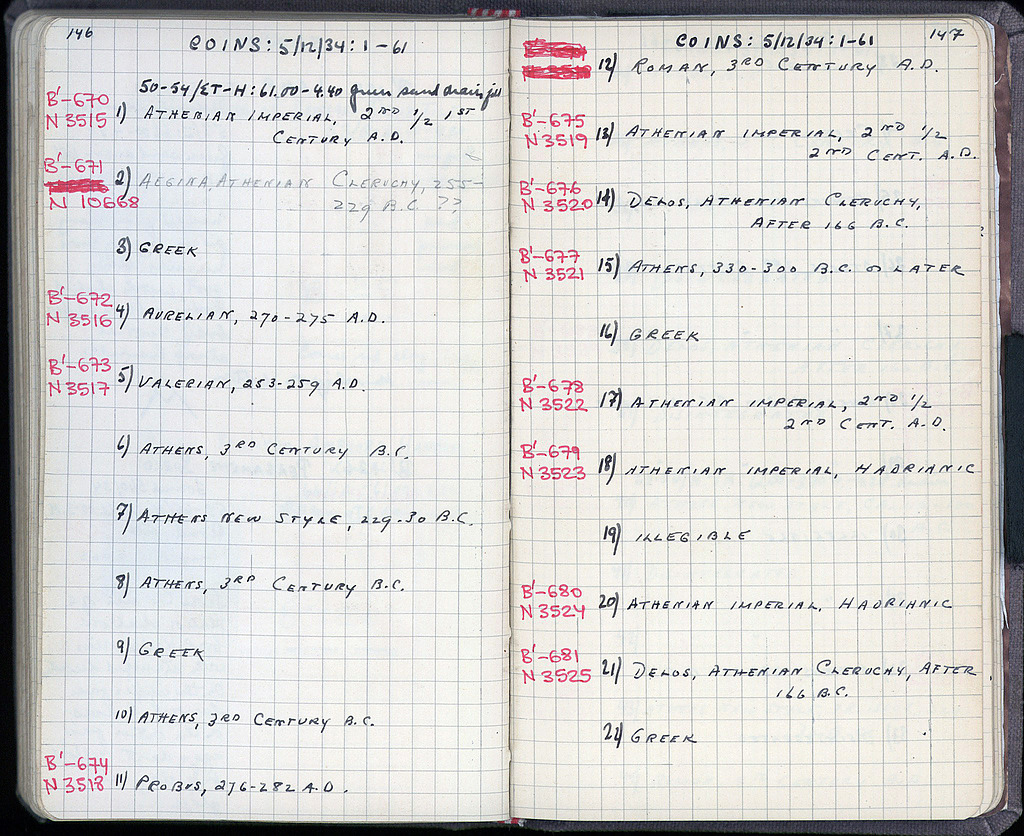 146
COINS: 5/12/34: 1-61
50-54/ΣT-H: 61.00-4.40 green sand drain fill
B'-670
N 3515 1) ATHENIAN IMPERIAL, 2ND 1/2 1ST
CENTURY A.D.
B'-671
2) AEGINA, ATHENIAN CLERUCHY, 255-
N 10668 229 B.C. ??
3) GREEK
B'-672
N 3516 4) AURELIAN, 270-275 A.D.
B'-673
N 3517 5) VALERIAN, 253-259 A.D.
6) ATHENS, 3RD CENTURY B.C.
7) ATHENS NEW STYLE, 229-30 B.C.
8) ATHENS, 3RD CENTURY B.C.
9) GREEK
10) ATHENS, 3RD CENTURY B.C.
B'-674
N 3518 11) PROBUS, 276-282 A.D.
147
COINS: 5/12/34: 1-61
12) ROMAN, 3RD CENTURY A.D.
B'-675
N 3519 13) ATHENIAN IMPERIAL, 2ND 1/2
2ND CENT. A.D.
B'-676
N 3520 14) DELOS, ATHENIAN CLERUCHY,
AFTER 166 B.C.
B'-677
N 3521 15) ATHENS, 330-300 B.C. or LATER
16) GREEK
B'-678
N 3522 17) ATHENIAN IMPERIAL, 2ND 1/2
2ND CENT. A.D.
B'-679
N 3523 18) ATHENIAN IMPERIAL, HADRIANIC
19) ILLEGIBLE
B'-680
N 3524 20) ATHENIAN IMPERIAL, HADRIANIC
B'-681
N 3525 21) DELOS, ATHENIAN CLERUCHY, AFTER
166 B.C.
22) GREEK